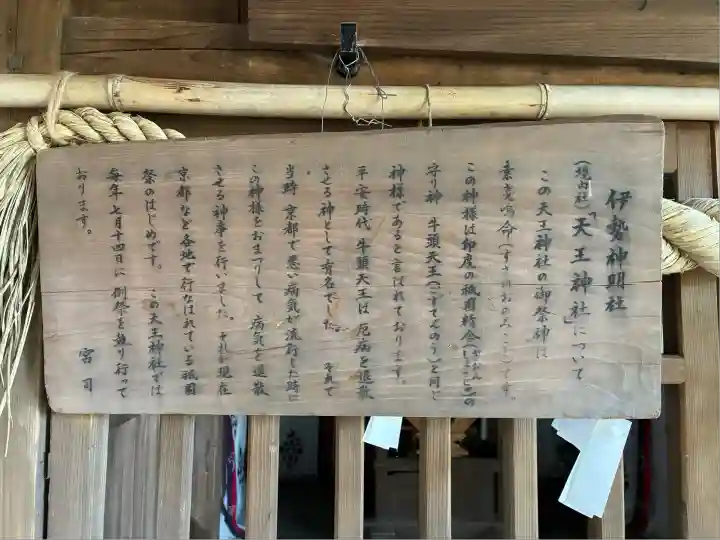 伊勢神明社
(境内社)「天王神社」について
この天王神社の御祭神は
素戔嗚命(すさのおのみこと)です。
この神様は印度の祇園精舎(しょうじゃ)の
守り神 牛頭天王(ごずてんのう)と同じ
神様であると言はれております。
平安時代 牛頭天王は 厄病を退散
させる神として有名でした。 それで
当時 京都で悪い病気が流行した時に
この神様をおまつりして 病気を退散
させる 神事を行いました。 それが現在
京都など各地で行なはれている 祇園
祭のはじめです。 この天王神社では
毎年 七月十四日に 例祭を執り行って
おります。
宮司